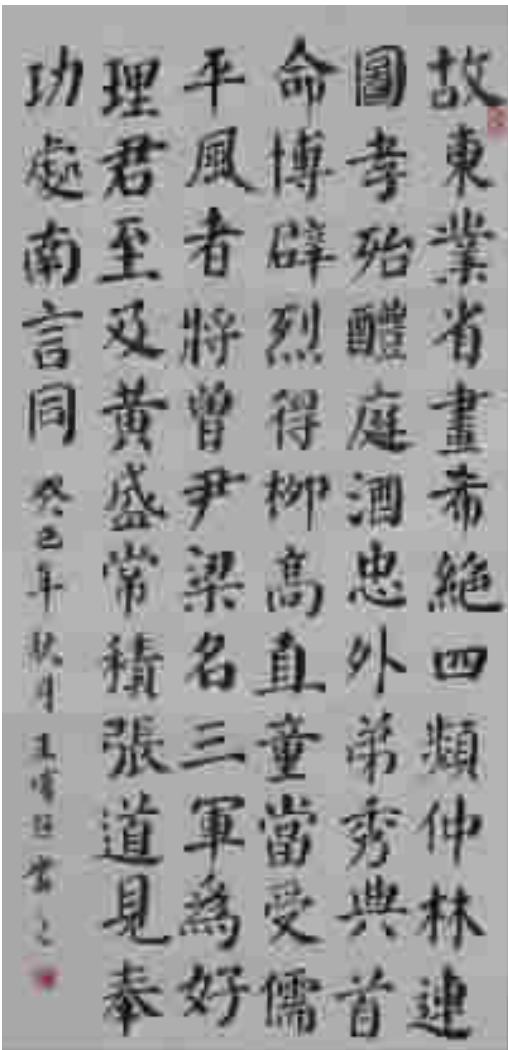 故東業省畫希絕四頻仲林連
圖孝殆醴庭酒忠外弟秀典首
命博辟烈得柳高直童當受儒
平風者將曾尹梁名三軍為好
理君至及黃盛常積張道見奉
功處南言同
癸巳年秋月王